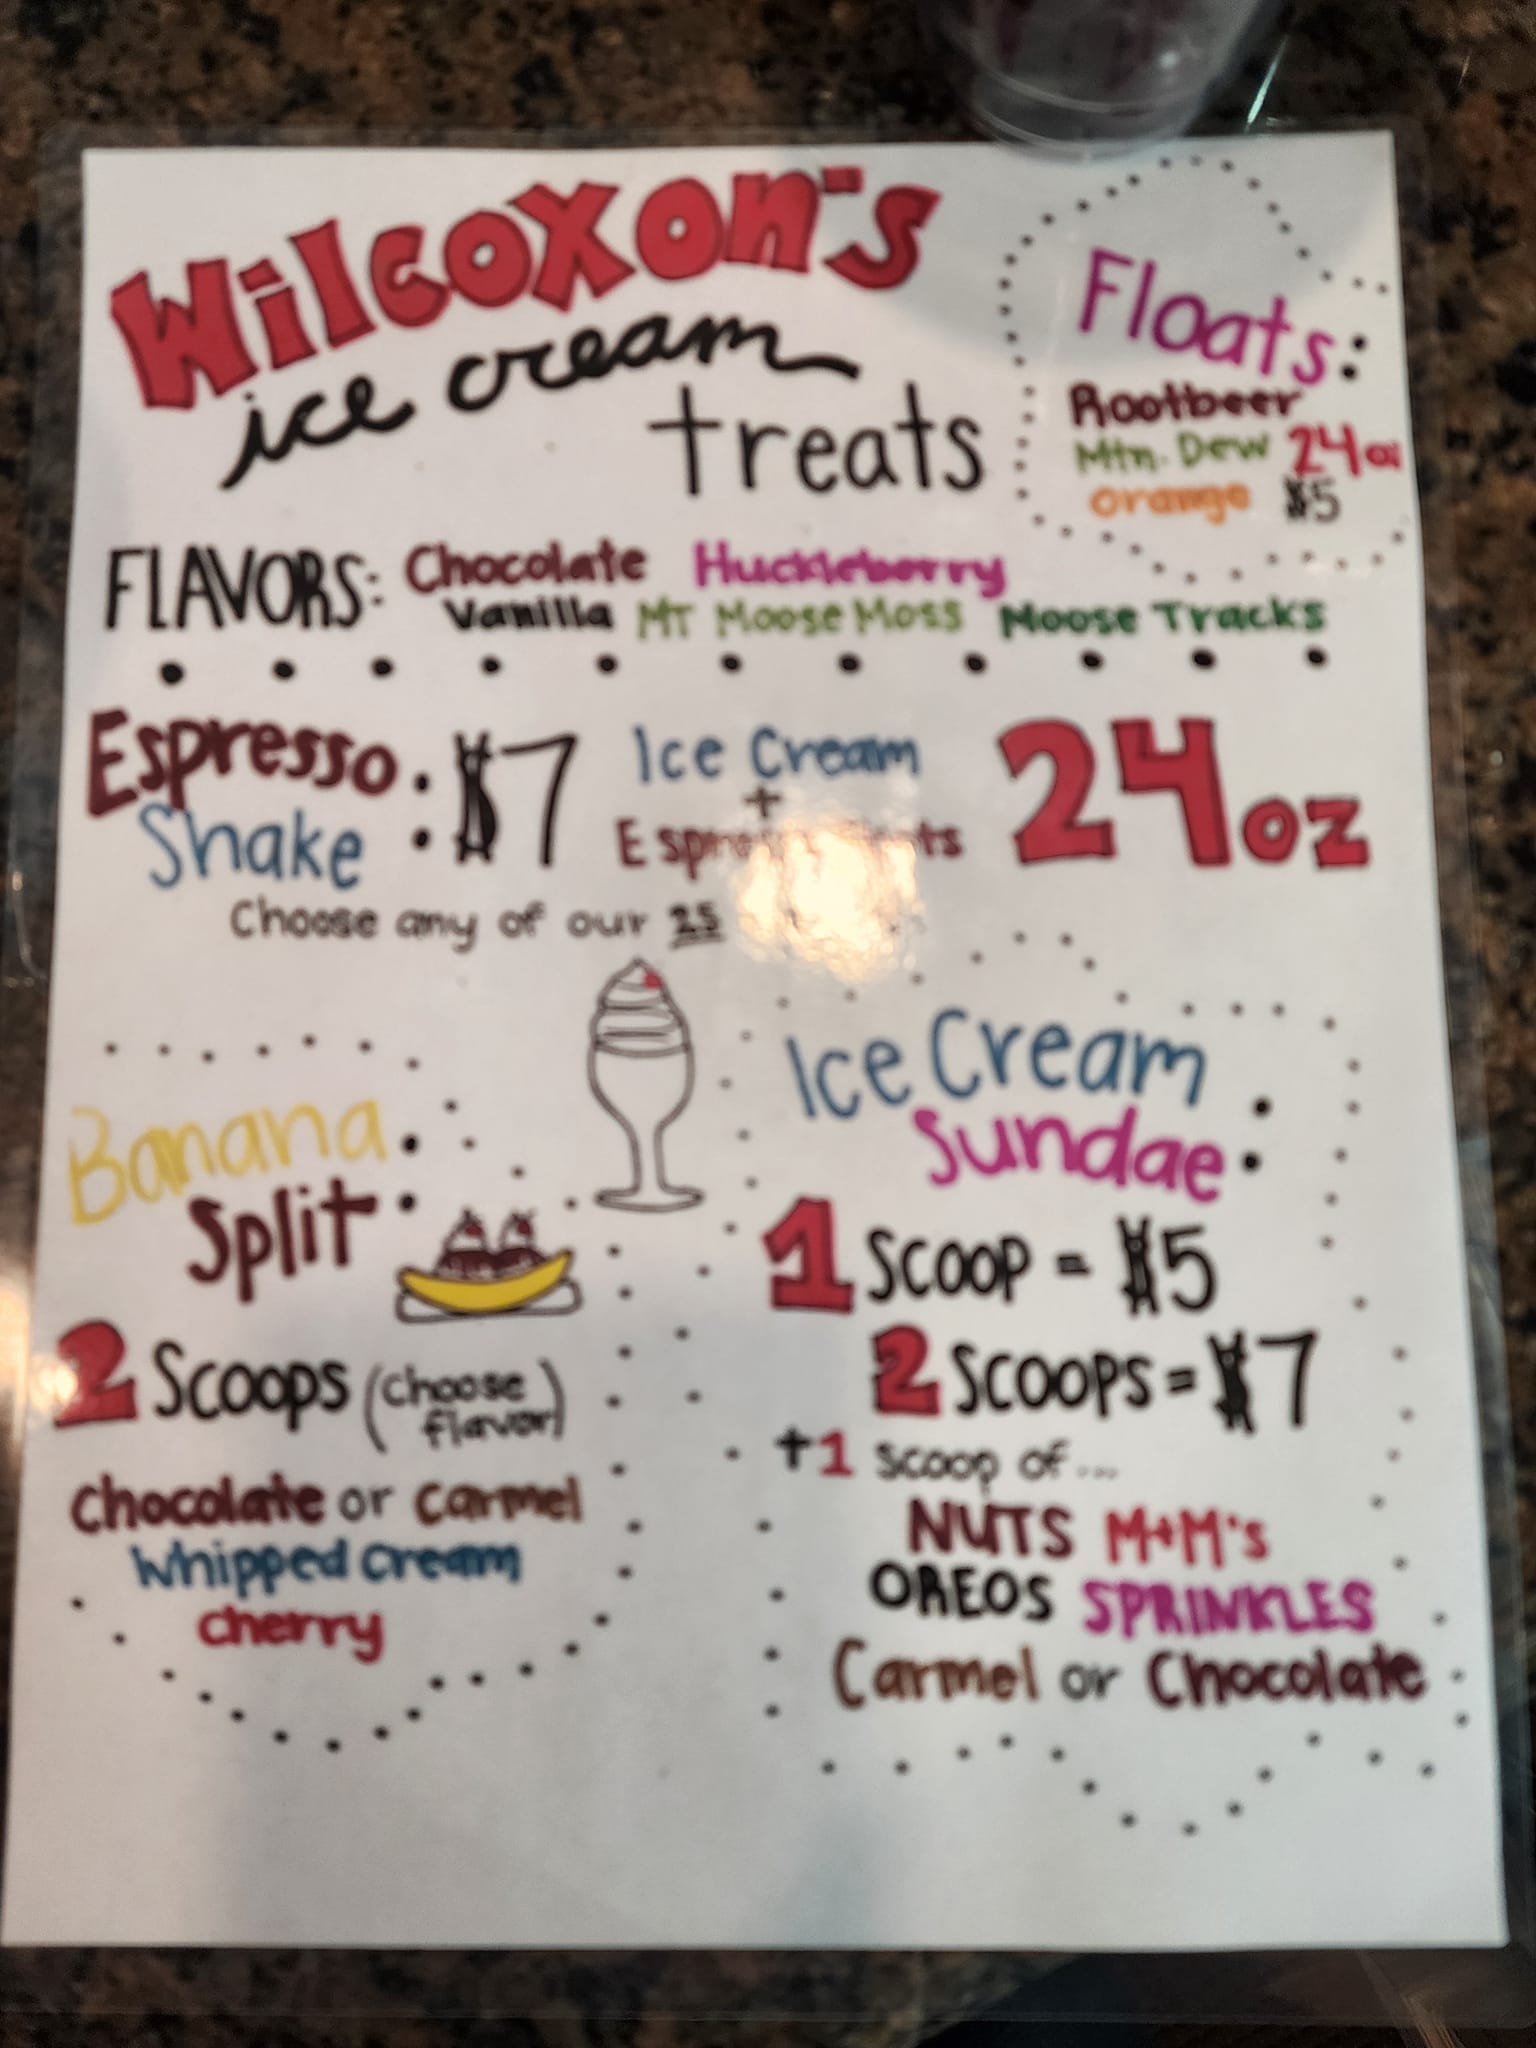 Wilcoxon's
ice cream
treats
Floats:
Rootbeer
Mtn. Dew 24oz
Orange $5
FLAVORS: Chocolate Huckleberry
Vanilla MT Moose Moss Moose Tracks
Espresso
Shake : $7
Ice Cream
+
Espresso
24oz
Choose any of our 25
Banana
Split :
2 Scoops (choose
flavor)
Chocolate or Carmel
Whipped Cream
cherry
Ice Cream
Sundae :
1 SCOOP = $5
2 SCOOPS = $7
+1 scoop of...
NUTS M+M's
OREOS SPRINKLES
Carmel or Chocolate